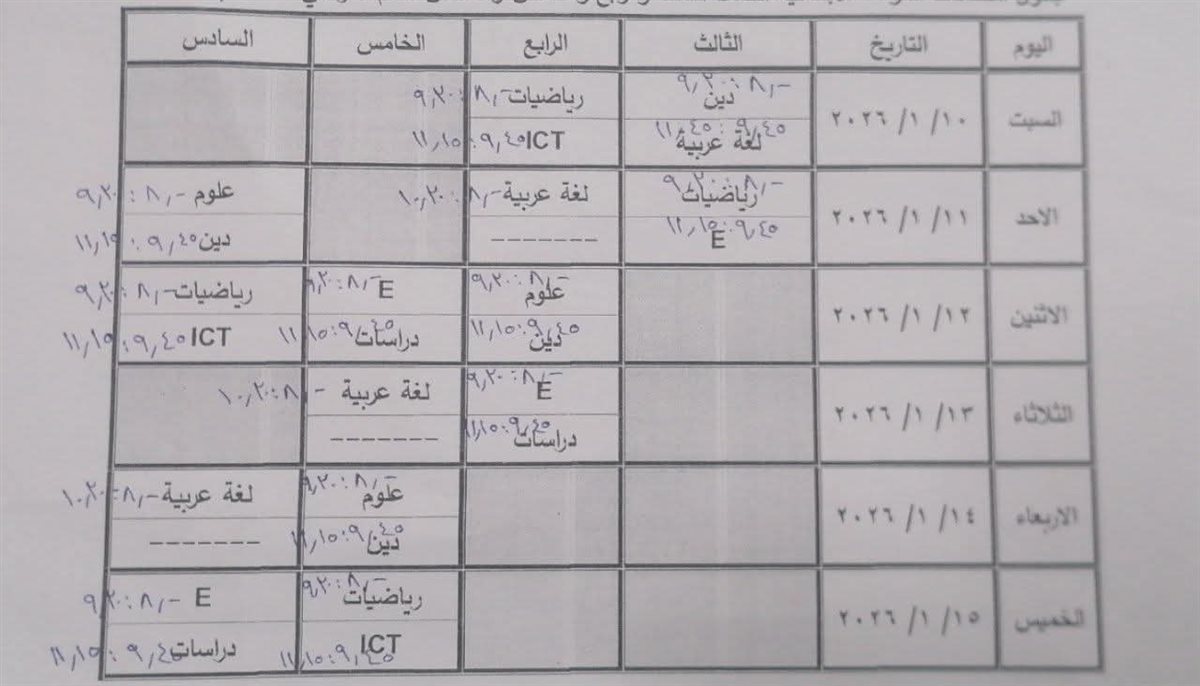 اليوم التاريخ الثالث الرابع الخامس السادس
السبت ٢٠٢٦ /١ /١٠
دين ٨,- : ٩,٢٠
لغة عربية ٩,٤٥ : ١١,٤٥
رياضيات ٨,- : ٩,٢٠
ICT ٩,٤٥ : ١١,١٥
الاحد ٢٠٢٦ /١ /١١
رياضيات ٨,- : ٩,٢٠
E ٩,٤٥ : ١١,١٥
لغة عربية ٨,- : ١٠,٢٠
-------
علوم ٨,- : ٩,٢٠
دين ٩,٤٥ : ١١,١٥
الاثنين ٢٠٢٦ /١ /١٢
علوم ٨,- : ٩,٢٠
دين ٩,٤٥ : ١١,١٥
E ٨,- : ٩,٢٠
دراسات ٩,٤٥ : ١١,١٥
رياضيات ٨,- : ٩,٢٠
ICT ٩,٤٥ : ١١,١٥
الثلاثاء ٢٠٢٦ /١ /١٣
E ٨,- : ٩,٢٠
دراسات ٩,٤٥ : ١١,١٥
لغة عربية ٨,- : ١٠,٢٠
-------
الاربعاء ٢٠٢٦ /١ /١٤
علوم ٨,- : ٩,٢٠
دين ٩,٤٥ : ١١,١٥
لغة عربية ٨,- : ١٠,٢٠
-------
الخميس ٢٠٢٦ /١ /١٥
رياضيات ٨,- : ٩,٢٠
ICT ٩,٤٥ : ١١,١٥
E ٨,- : ٩,٢٠
دراسات ٩,٤٥ : ١١,١٥